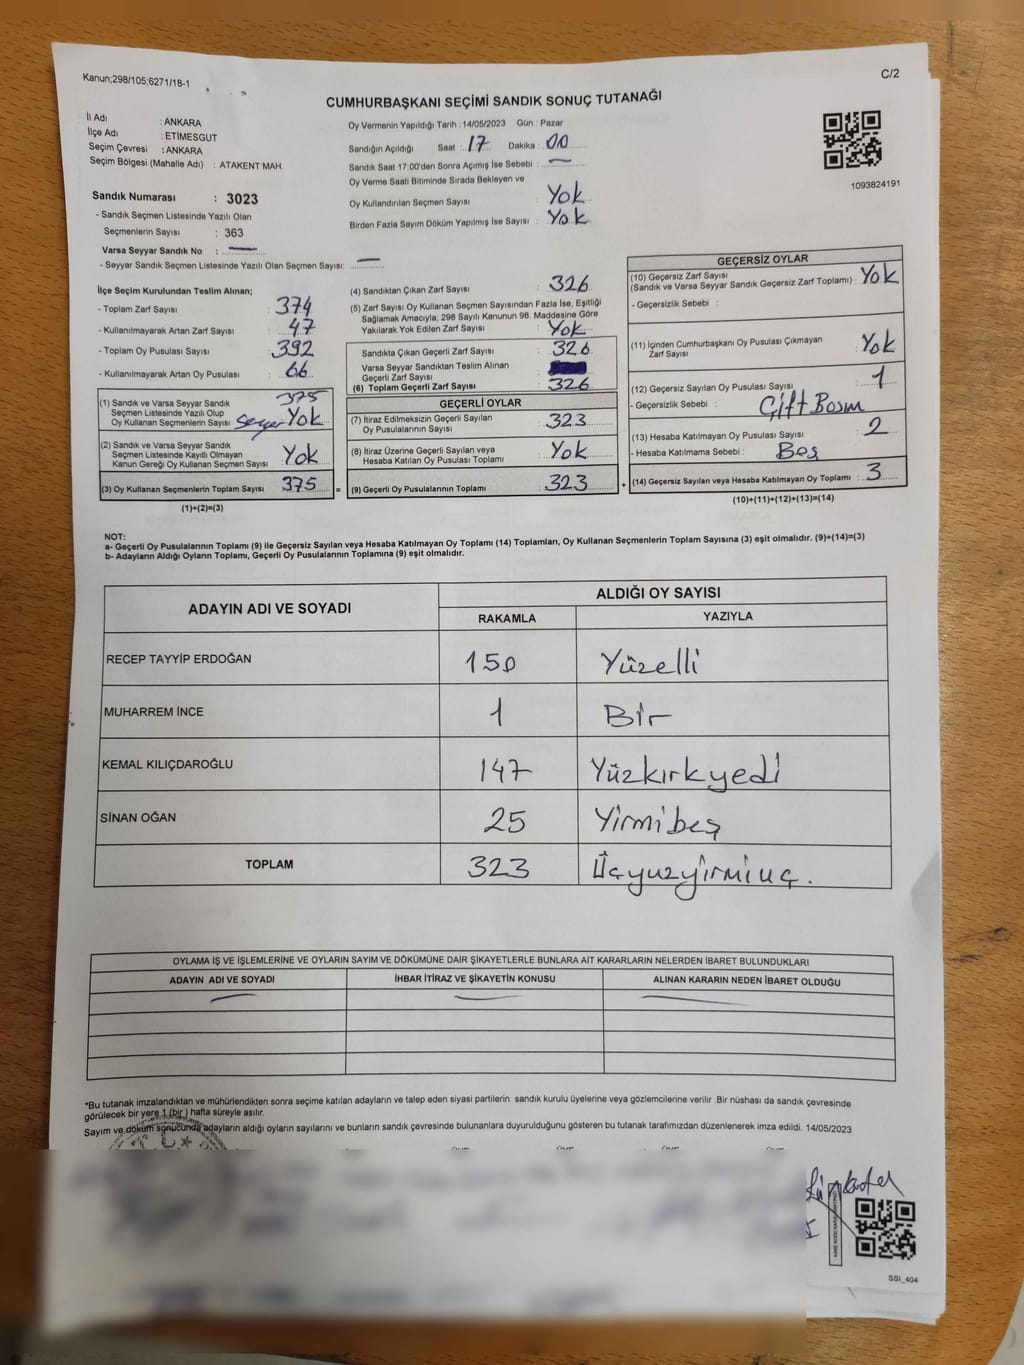 Kanun;298/105;6271/18-1
C/2
CUMHURBAŞKANI SEÇİMİ SANDIK SONUÇ TUTANAĞI
İl Adı : ANKARA
İlçe Adı : ETİMESGUT
Seçim Çevresi : ANKARA
Seçim Bölgesi (Mahalle Adı) : ATAKENT MAH.
Sandık Numarası : 3023
- Sandık Seçmen Listesinde Yazılı Olan
Seçmenlerin Sayısı : 363
Varsa Seyyar Sandık No : —
- Seyyar Sandık Seçmen Listesinde Yazılı Olan Seçmen Sayısı: —
Oy Vermenin Yapıldığı Tarih : 14/05/2023 Gün : Pazar
Sandığın Açıldığı Saat : 17 Dakika : 00
Sandık Saat 17.00'den Sonra Açımış İse Sebebi : —
Oy Verme Saati Bitiminde Sırada Bekleyen ve
Oy Kullandırılan Seçmen Sayısı Yok
Birden Fazla Sayım Döküm Yapılmış İse Sayısı : Yok
1093824191
İlçe Seçim Kurulundan Teslim Alınan;
- Toplam Zarf Sayısı : 374
- Kullanılmayarak Artan Zarf Sayısı : 47
- Toplam Oy Pusulası Sayısı : 392
- Kullanılmayarak Artan Oy Pusulası : 66
(1) Sandık ve Varsa Seyyar Sandık 375
Seçmen Listesinde Yazılı Olup
Oy Kullanan Seçmenlerin Sayısı Seyyar Yok
(2) Sandık ve Varsa Seyyar Sandık
Seçmen Listesinde Kayıtlı Olmayan
Kanun Gereği Oy Kullanan Seçmen Sayısı Yok
(3) Oy Kullanan Seçmenlerin Toplam Sayısı 375
(1)+(2)=(3)
=
(4) Sandıktan Çıkan Zarf Sayısı : 326
(5) Zarf Sayısı Oy Kullanan Seçmen Sayısından Fazla İse, Eşitliği
Sağlamak Amacıyla; 298 Sayılı Kanunun 98. Maddesine Göre
Yakılarak Yok Edilen Zarf Sayısı : Yok
Sandıkta Çıkan Geçerli Zarf Sayısı : 326
Varsa Seyyar Sandıktan Teslim Alınan
Geçerli Zarf Sayısı
(6) Toplam Geçerli Zarf Sayısı : 326
GEÇERLİ OYLAR
(7) İtiraz Edilmeksizin Geçerli Sayılan
Oy Pusulalarının Sayısı : 323
(8) İtiraz Üzerine Geçerli Sayılan veya
Hesaba Katılan Oy Pusulası Toplamı : Yok
(9) Geçerli Oy Pusulalarının Toplamı : 323
+
GEÇERSİZ OYLAR
(10) Geçersiz Zarf Sayısı
(Sandık ve Varsa Seyyar Sandık Geçersiz Zarf Toplamı) : Yok
- Geçersizlik Sebebi :
(11) İçinden Cumhurbaşkanı Oy Pusulası Çıkmayan
Zarf Sayısı : Yok
(12) Geçersiz Sayılan Oy Pusulası Sayısı : 1
- Geçersizlik Sebebi : Çift Basım
(13) Hesaba Katılmayan Oy Pusulası Sayısı : 2
- Hesaba Katılmama Sebebi : Boş
(14) Geçersiz Sayılan veya Hesaba Katılmayan Oy Toplamı : 3
(10)+(11)+(12)+(13)=(14)
NOT:
a- Geçerli Oy Pusulalarının Toplamı (9) ile Geçersiz Sayılan veya Hesaba Katılmayan Oy Toplamı (14) Toplamları, Oy Kullanan Seçmenlerin Toplam Sayısına (3) eşit olmalıdır. (9)+(14)=(3)
b- Adayların Aldığı Oyların Toplamı, Geçerli Oy Pusulalarının Toplamına (9) eşit olmalıdır.
ADAYIN ADI VE SOYADI ALDIĞI OY SAYISI
RAKAMLA YAZIYLA
RECEP TAYYİP ERDOĞAN 150 Yüzelli
MUHARREM İNCE 1 Bir
KEMAL KILIÇDAROĞLU 147 Yüzkırkyedi
SİNAN OĞAN 25 Yirmibeş
TOPLAM 323 Üçyuzyirmiuç.
OYLAMA İŞ VE İŞLEMLERİNE VE OYLARIN SAYIM VE DÖKÜMÜNE DAİR ŞİKAYETLERLE BUNLARA AİT KARARLARIN NELERDEN İBARET BULUNDUKLARI
ADAYIN ADI VE SOYADI İHBAR İTİRAZ VE ŞİKAYETİN KONUSU ALINAN KARARIN NEDEN İBARET OLDUĞU
— — —
*Bu tutanak imzalandıktan ve mühürlendikten sonra seçime katılan adayların ve talep eden siyasi partilerin sandık kurulu üyelerine veya gözlemcilerine verilir .Bir nüshası da sandık çevresinde
görülecek bir yere 1 (bir ) hafta süreyle asılır.
Sayım ve döküm sonucunda adayların aldığı oyların sayılarını ve bunların sandık çevresinde bulunanlara duyurulduğunu gösteren bu tutanak tarafımızdan düzenlenerek imza edildi. 14/05/2023
SSI_404